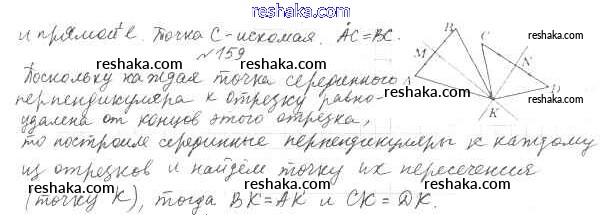 reshaka.com
и прямой ℓ. Точка C - искомая. AC = BC.
№159
Поскольку каждая точка серединного
перпендикуляра к отрезку равно-
удалена от концов этого отрезка,
то построим серединные перпендикуляры к каждому
из отрезков и найдём точку их пересечения
(точку K), тогда BK = AK и CK = DK.
B
C
M
N
A
D
K
reshaka.com
reshaka.com
reshaka.com
reshaka.com
reshaka.com
reshaka.com
reshaka.com
reshaka.com
reshaka.com
reshaka.com
reshaka.com